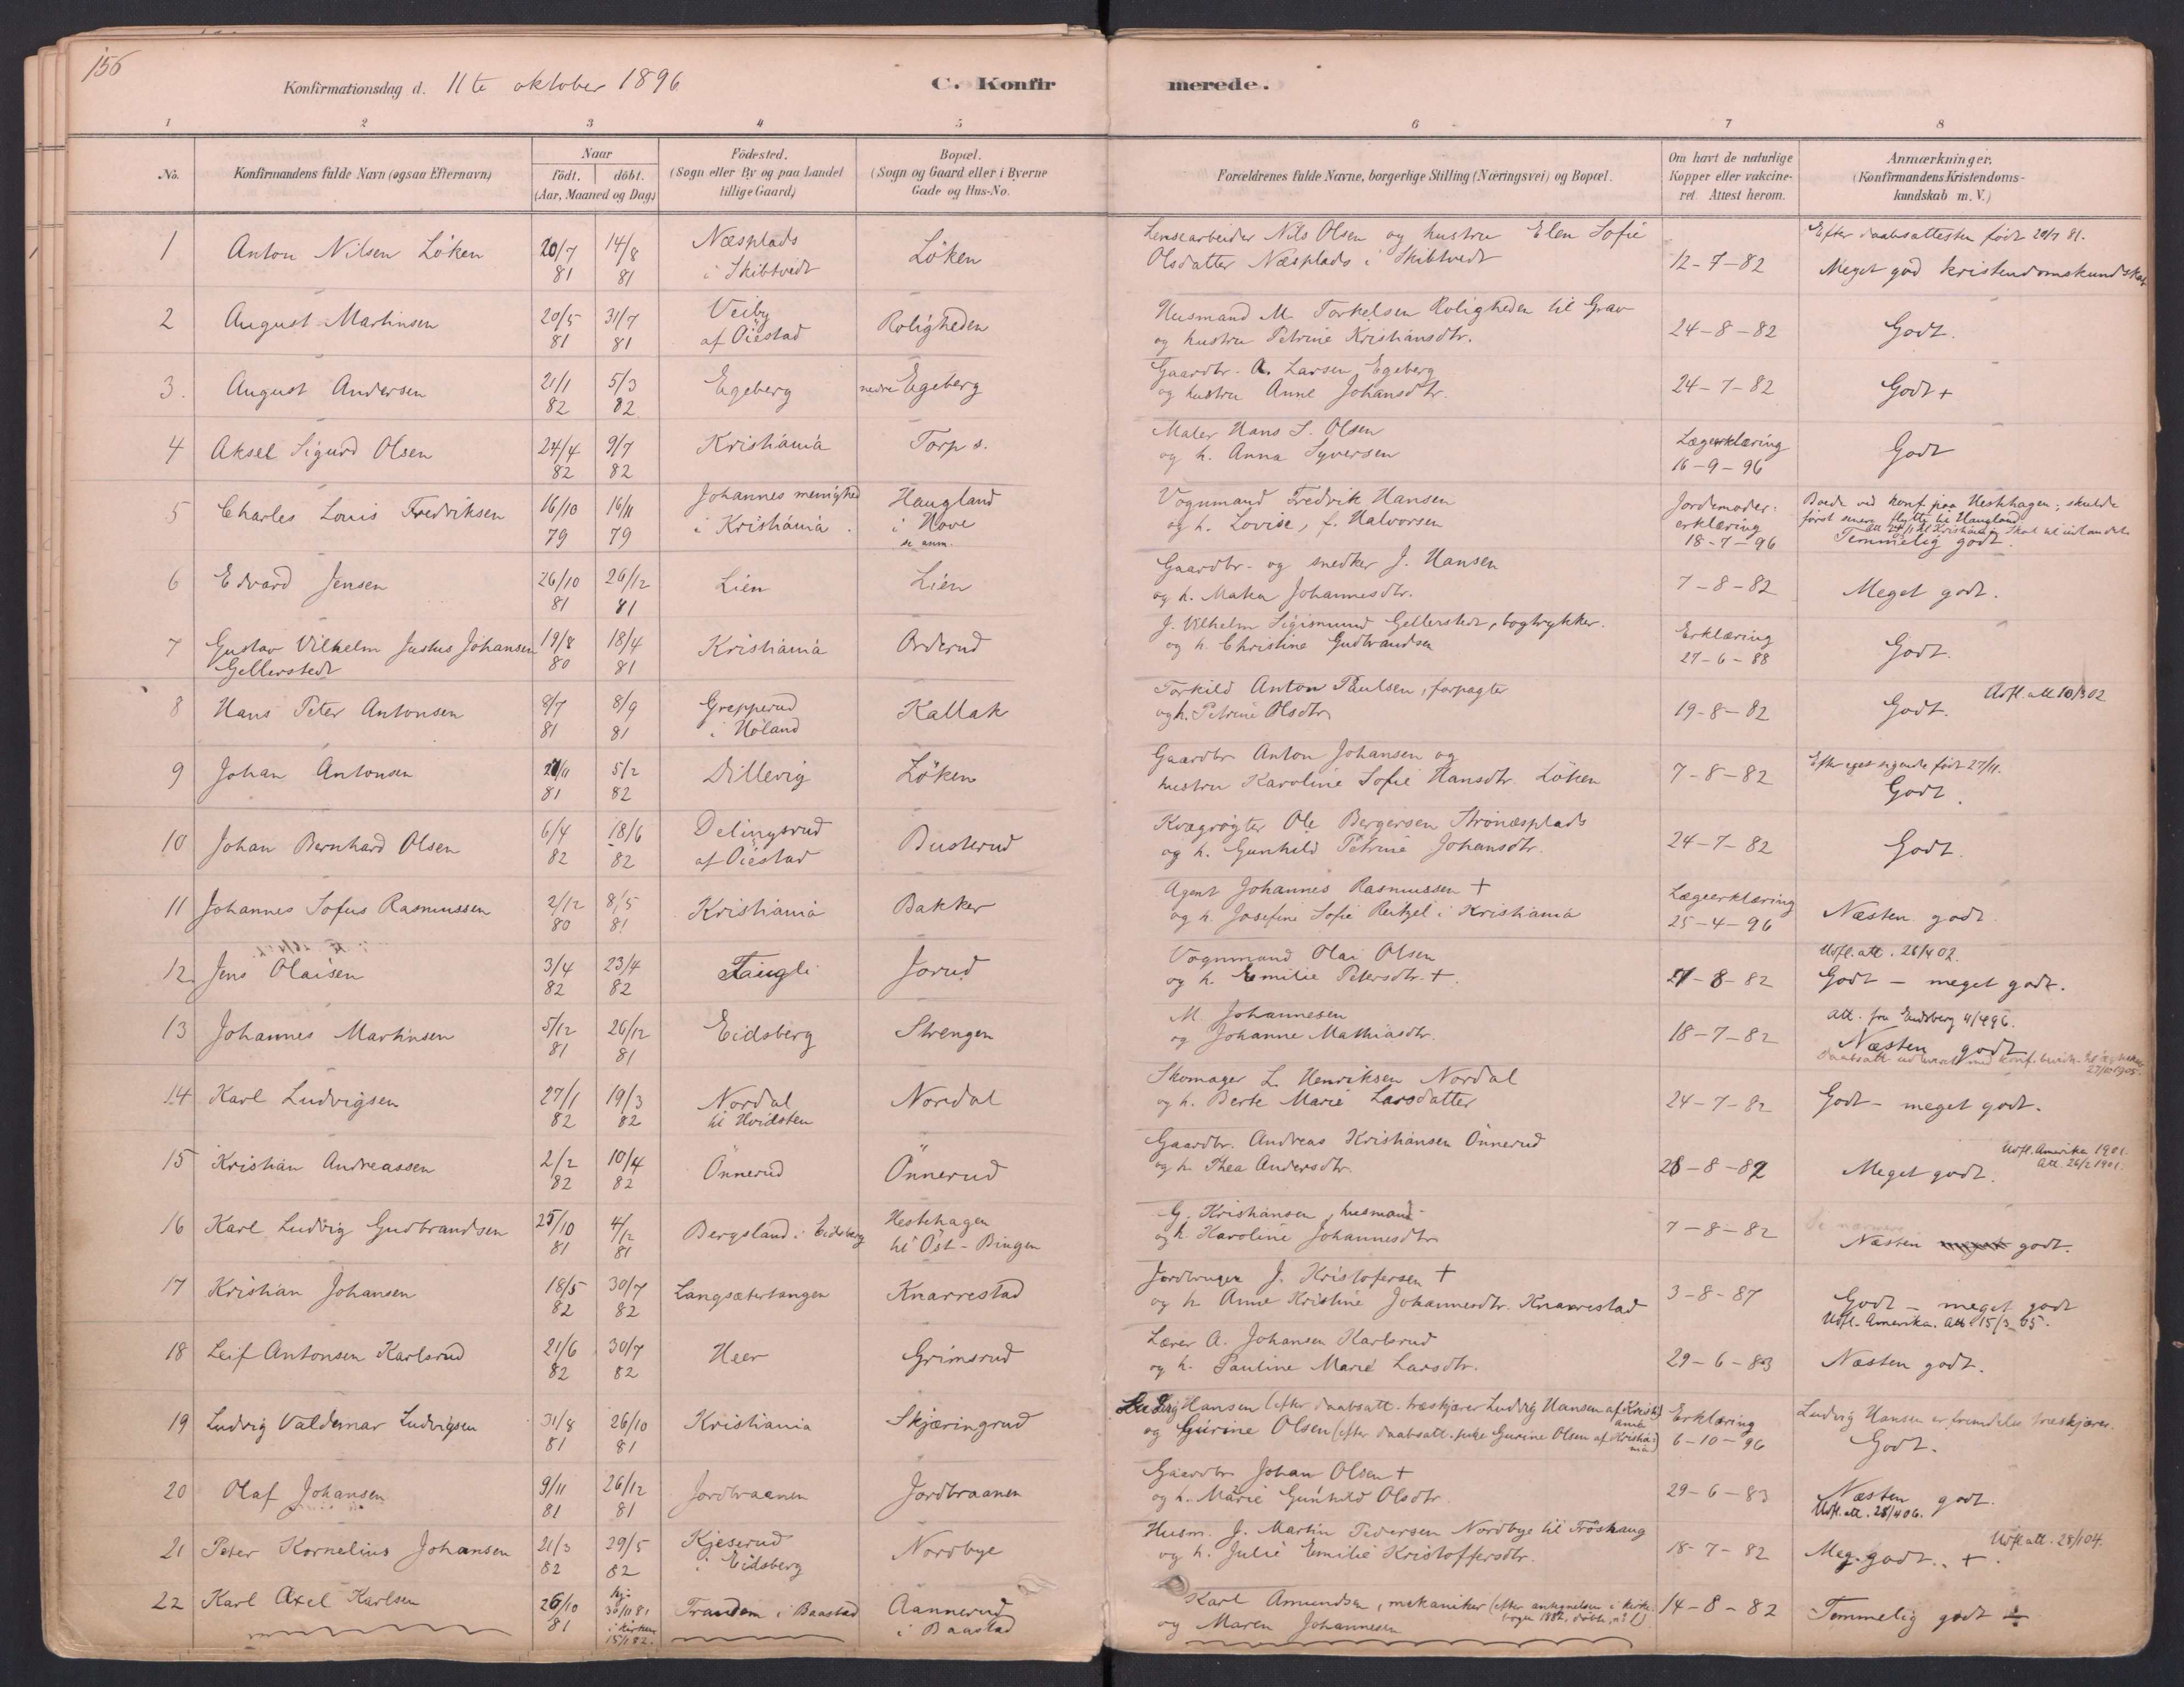 156
Konfirmationsdag d. 11te oktober 1896
C. Konfirmerede.
1 2 3 4 5 6 7 8
No.
Konfirmandens fulde Navn (ogsaa Efternavn)
Naar
födt. döbt.
(Aar, Maaned og Dag)
Födested.
(Sogn eller By og paa Landet
tillige Gaard)
Bopæl.
(Sogn og Gaard eller i Byerne
Gade og Hus-No.
Forældrenes fulde Navne, borgerlige Stilling (Næringsvei) og Bopæl.
Om havt de naturlige
Kopper eller vakcine-
ret. Attest herom.
Anmærkninger.
(Konfirmandens Kristendoms-
kundskab m. V.)
1 Anton Nilsen Löken 20/7 81 14/8 81 Næsplads i Skibtvedt Löken
Lensearbeider Nils Olsen og hustru Elen Sofie
Olsdatter Næsplads i Skibtvedt 12-7-82
Efter daabsattesten födt 29/7 81.
Meget god kristendomskundskab
2 August Martinsen 20/5 81 31/7 81 Veiby af Öiestad Roligheden
Husmand M. Torkelsen Roligheden til Grav
og hustru Petrine Kristiansdtr. 24-8-82 Godt.
3. August Andersen 21/1 82 5/3 82 Egeberg nedre Egeberg
Gaardbr. A. Larsen Egeberg
og hustru Anne Johansdtr. 24-7-82 Godt +
4 Aksel Sigurd Olsen 24/4 82 9/7 82 Kristiania Torp s.
Maler Hans S. Olsen
og h. Anna Syversen Lægerklæring 16-9-96 Godt
5 Charles Louis Fredriksen 16/10 79 16/11 79 Johannes menighed i Kristiania. Haugland i Hove se anm.
Vognmand Fredrik Hansen
og h. Lovise, f. Halvorsen Jordemoder-erklæring 18-7-96
Boede ved konf. paa Hestehagen; skulde
först senere flytte til Haugland.
Temmelig godt.
6 Edvard Jensen 26/10 81 26/12 81 Lien Lien
Gaardbr- og snedker J. Hansen
og h. Maten Johannesdtr. 7-8-82 Meget godt.
7 Gustav Vilhelm Justus Johansen
Gellerstedt 19/8 80 18/4 81 Kristiania Orderud
J. Vilhelm Sigismund Gellerstedt, bogtrykker.
og h. Christine Gudbrandsen Erklæring 27-6-88 Godt.
8 Hans Peter Antonsen 8/7 81 8/9 81 Grepperud i Höland Kallak
Torkild Anton Paulsen, forpagter
og h. Petrine Olsdtr. 19-8-82 Godt. Udfl. att 10/3 02
9 Johan Antonsen 21/11 81 5/2 82 Dillevig Löken
Gaardbr Anton Johansen og
hustru Karoline Sofie Hansdtr. Löken 7-8-82
Efter eget sigende födt 27/11.
Godt.
10 Johan Bernhard Olsen 6/4 82 18/6 82 Delingsrud af Öiestad Busterud
Kvægrögter Ole Bergersen Stronæsplads
og h. Gunhild Petrine Johansdtr. 24-7-82 Godt.
11 Johannes Sofus Rasmussen 2/12 80 8/5 81 Kristiania Bakker
Agent Johannes Rasmussen +
og h. Josefine Sofie Rentzel i Kristiania Lægeerklæring 25-4-96 Næsten godt
12 Jens Olaisen 3/4 82 23/4 82 Taugli Jorud
Vognmand Olai Olsen
og h. Emilie Petersdtr. +. 21-8-82
Udfl. att. 28/4 02.
Godt - meget godt.
13 Johannes Martinsen 5/12 81 26/12 81 Eidsberg Strengen
M. Johannesen
og Johanne Mathiasdtr. 18-7-82
att. fra Eidsberg 4/4 96.
Næsten godt
14 Karl Ludvigsen 27/1 82 19/3 82 Nordal til Hvidsten Nordal
Skomager L. Henriksen Nordal
og h. Berte Marie Larsdatter 24-7-82 Godt - meget godt.
15 Kristian Andreassen 2/2 82 10/4 82 Önnerud Önnerud
Gaardbr. Andreas Kristiansen Önnerud
og h. Thea Andersdtr. 28-8-82
Udfl. Amerika 1901.
Att. 26/2 1901.
Meget godt.
16 Karl Ludvig Gudbrandsen 25/10 81 4/12 81 Bergsland i Eidsberg Hestehagen til Öst-Bingen
G. Kristiansen, husmand
og h. Karoline Johannesdtr. 7-8-82
Se nærmere
Næsten meget godt.
17 Kristian Johansen 18/5 82 30/7 82 Langsætertangen Knarrestad
Jordbruger J. Kristofersen +
og h. Anne Kristine Johannesdtr. Knarrestad 3-8-87
Godt - meget godt
Udfl. Amerika. Att. 15/3 05.
18 Leif Antonsen Karlsrud 21/6 82 30/7 82 Heer Grimsrud
Lærer A. Johansen Karlsrud
og h. Pauline Marie Larsdtr. 29-6-83 Næsten godt.
19 Ludvig Valdemar Ludvigsen 31/8 81 26/10 81 Kristiania Skjæringrud
Ludvig Hansen (efter daabsatt. træskjærer Ludvig Hansen af Kristiania)
og Gurine Olsen (efter daabsatt. pike Gurine Olsen af Kristiania) Erklæring 6-10-96
Ludvig Hansen er fremdeles træskjærer.
Godt.
20 Olaf Johansen 9/11 81 26/12 81 Jordbraanen Jordbraanen
Gaardbr Johan Olsen +
og h. Marie Gunhild Olsdtr. 29-6-83
Næsten godt.
Udfl. att. 28/4 06.
21 Peter Kornelius Johansen 21/3 82 29/5 82 Kjeserud i Eidsberg Nordbye
Husm. J. Martin Pedersen Nordbye til Tröshaug
og h. Julie Emilie Kristoffersdtr. 18-7-82
Udfl att. 28/1 04.
Meg. godt. +
22 Karl Axel Karlsen 26/10 81 hj. 30/11 81 i kirken 15/1 82. Trandem i Baastad Aannerud i Baastad
Karl Amundsen, mekaniker (efter antegnelsen i kirke-
bogen 1882, döbte, n: 1)
og Maren Johannesen 14-8-82 Temmelig godt ÷